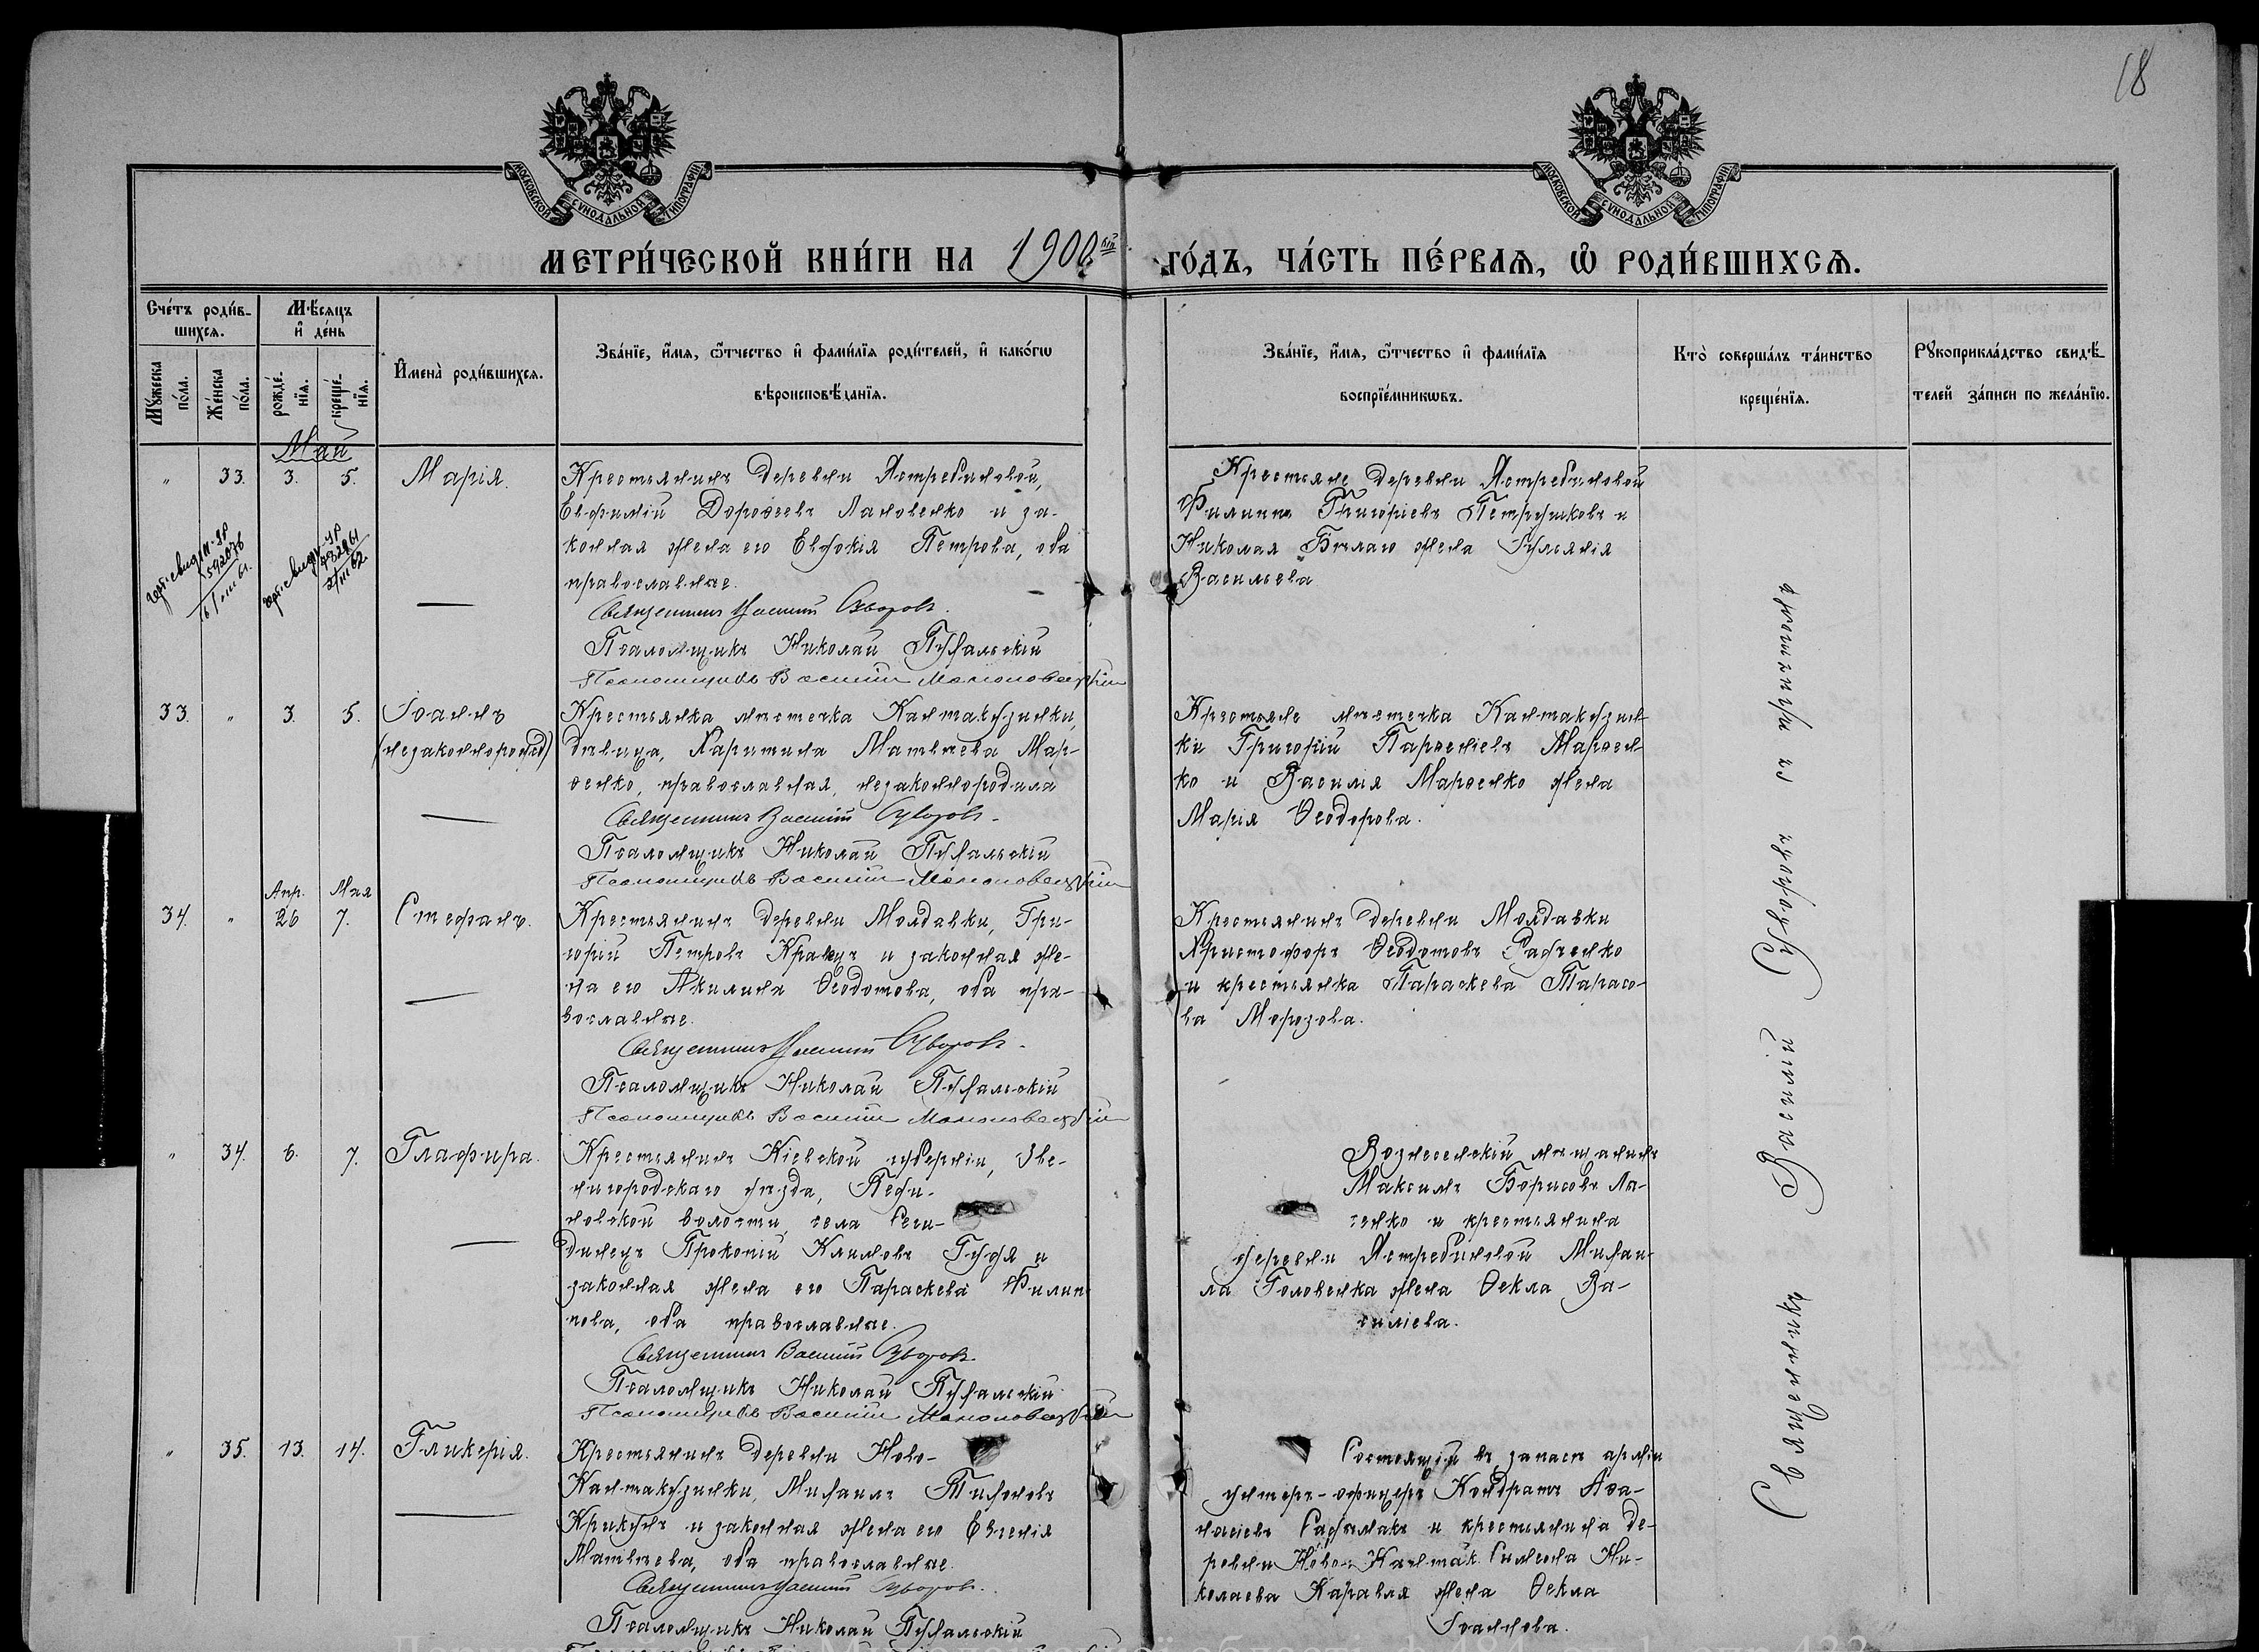 18
МОСКОВСКОЙ СѴНОДАЛЬНОЙ ТИПОГРАФІИ.
МОСКОВСКОЙ СѴНОДАЛЬНОЙ ТИПОГРАФІИ.
МЕТРИ́ЧЕСКОЙ КНИ́ГИ НА 1900ый ГО́ДЪ, ЧА́СТЬ ПЕ́РВАѦ, Ѡ РОДИ́ВШИХСѦ.
Сче́тъ роди́в-
шихсѧ.
Мꙋ́жеска по́ла.
Же́нска по́ла.
Мѣ́сѧцъ
и҆ де́нь
рожде́-
нїѧ.
креще́-
нїѧ.
И҆мена̀ роди́вшихсѧ.
Зва́нїе, и҆́мѧ, ѻ҆́тчество и҆ фами́лїѧ роди́телей, и҆ како́гѡ
вѣроисповѣ́данїѧ.
Зва́нїе, и҆́мѧ, ѻ҆́тчество и҆ фами́лїѧ
воспрїе́мникѡвъ.
Кто̀ соверша́лъ та́инство
креще́нїѧ.
Рꙋкоприкла́дство свидѣ́-
телей за́писи по жела́нїю.
Май
" 33. 3. 5. Марія.
Крестьянинъ деревни Ястребиновой,
Евфимій Дороѳеевъ Лановенко и за-
конная жена его Евдокія Петрова, оба
православные.
Священникъ Василій Суворовъ.
Псаломщикъ Николай Пухальскій
Псаломщикъ Василій
Крестьяне деревни Ястребиновой
Филиппъ Григоріевъ Петрушковъ и
Николая Бѣлаго жена Іуліанія
Васильева
33. " 3. 5. Іоаннъ
(незаконнорожд)
Крестьянка мѣстечка Кантакузинки,
дѣвица, Харитина Матвѣева Мар-
сенко, православная, незаконнородила
Священникъ Василій Суворовъ.
Псаломщикъ Николай Пухальскій
Псаломщикъ Василій
Крестьяне мѣстечка Кантакузин-
ки Григорій Парѳеніевъ Марсен-
ко и Василія Марсенко жена
Марія Ѳеодорова.
Апр. Мая
34. " 26 7. Стефанъ.
Крестьянинъ деревни Молдавки, Гри-
горій Петровъ Кравец и законная же-
на его Акилина Ѳеодотова, оба пра-
вославные.
Священникъ Василій Суворовъ.
Псаломщикъ Николай Пухальскій
Псаломщикъ Василій
Крестьянинъ деревни Молдавки
Христофоръ Ѳеодотовъ Савченко
и крестьянка Параскева Тарасо-
ва Морозова.
" 34. 6. 7. Глафира.
Крестьянинъ Кіевской губерніи, Зве-
нигородскаго уѣзда,
волости, села
Прокопій Климовъ и
законная жена его Параскева Филип-
пова, оба православные.
Священникъ Василій Суворовъ.
Псаломщикъ Николай Пухальскій
Псаломщикъ Василій
Вознесенскій мѣщанинъ
Максимъ Борисовъ Ля-
сенко и крестьянина
деревни Ястребиновой Михаи-
ла Головенка жена Ѳекла Ва-
силіева.
" 35. 13. 14. Гликерія.
Крестьянинъ деревни Ново-
Кантакузинки, Михаилъ Тихоновъ
Крикунъ и законная жена его Евгенія
Матвѣева, оба православные.
Священникъ Василій Суворовъ.
Псаломщикъ Николай Пухальскій
Состоящій въ запасѣ арміи
унтеръ-офицеръ Кондратъ Аѳа-
насіевъ и крестьянина де-
ревни Ново-Кантак. Симеона Ни-
колаева Каравая жена Ѳекла
Іоаннова.
Священникъ Василій Суворовъ съ причтомъ